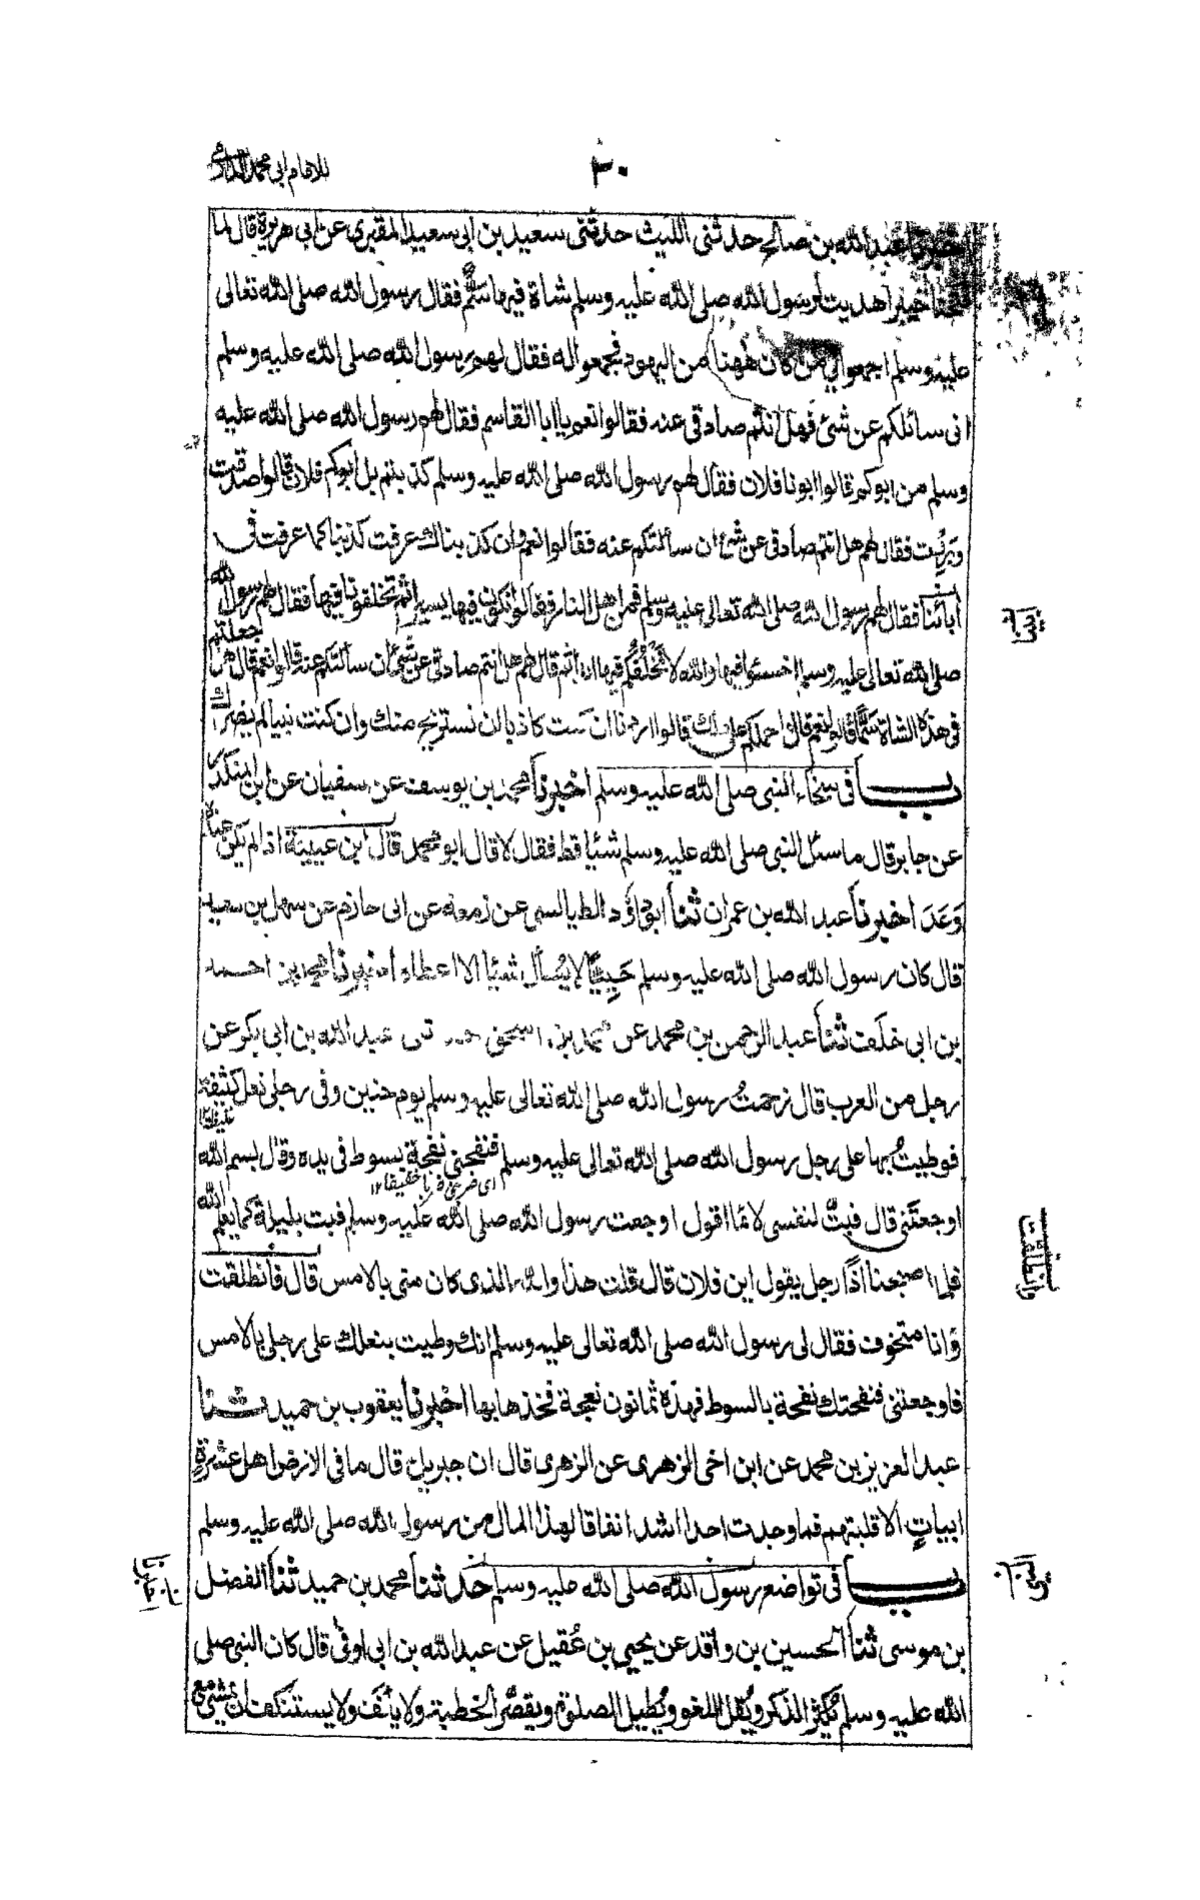 للامام ابى محمد الدارمى
٣٠
عبد الله بن صالح حدثنى الليث حدثنى سعيد بن ابى سعيد المقبرى عن ابى هريرة قال لما
خيبر اهديت لرسول الله صلى الله عليه وسلم شاة فيها سم فقال رسول الله صلى الله تعالى
عليه وسلم اجمعوا لى من كان ههنا من اليهود فجمعوا له فقال لهم رسول الله صلى الله عليه وسلم
انى سائلكم عن شئ فهل انتم صادقى عنه فقالوا نعم يا ابا القاسم فقال لهم رسول الله صلى الله عليه
وسلم من ابوكم قالوا ابونا فلان فقال لهم رسول الله صلى الله عليه وسلم كذبتم بل ابوكم فلان قالوا صدقت
وبررت فقال لهم هل انتم صادقى عن شئ ان سألتكم عنه فقالوا نعم وان كذبناك عرفت كذبنا كما عرفت فى
ابائنا فقال لهم رسول الله صلى الله تعالى عليه وسلم فمن اهل النار فقالوا نكون فيها يسيرا ثم تخلفونا فيها فقال لهم رسول الله
صلى الله تعالى عليه وسلم اخسئوا فيها والله لا نخلفكم فيها ابدا ثم قال لهم هل انتم صادقى عن شئ ان سألتكم عنه قالوا نعم قال هل جعلتم
فى هذه الشاة سما قالوا نعم قال ما حملكم على ذلك قالوا اردنا ان كنت كاذبا ان نستريح منك وان كنت نبيا لم يضرك
باب فى سخاء النبى صلى الله عليه وسلم اخبرنا محمد بن يوسف عن سفيان عن ابن المنكدر
عن جابر قال ما سئل النبى صلى الله عليه وسلم شيئا قط فقال لا قال ابو محمد قال ابن عيينة اذا لم يكن عنده
وَعَدَ اخبرنا عبد الله بن عمران ثنا ابو داؤد الطيالسى عن زمعة عن ابى حازم عن سهل بن سعيد
قال كان رسول الله صلى الله عليه وسلم حَيِيًّا لا يُسأل شيئا الا اعطاه اخبرنا محمد بن احمد
بن ابى خلف ثنا عبد الرحمن بن محمد عن محمد بن اسحق حدثنى عبد الله بن ابى بكر عن
رجل من العرب قال زحمتُ رسول الله صلى الله تعالى عليه وسلم يوم حنين وفى رجلى نعل كثيفة
فوطيتُ بها على رجل رسول الله صلى الله تعالى عليه وسلم فنفحنى نفحة بسوط فى يده وقال بسم الله
اى ضربنى ضربا خفيفا ١٢
اوجعتَنى قال فبتُّ لنفسى لائما اقول اوجعت رسول الله صلى الله عليه وسلم فبت بليلة كما يعلم الله
فلما اصبحنا اذًا رجل يقول اين فلان قال قلت هذا والله الذى كان منى بالامس قال فانطلقت
وَانا متخوف فقال لى رسول الله صلى الله تعالى عليه وسلم انك وطيت بنعلك على رجلى بالامس
فاوجعتنى فنفحتك نفحة بالسوط فهذه ثمانون نعجة فخذها بها اخبرنا يعقوب بن حميد ثنا
عبد العزيز بن محمد عن ابن اخى الزهرى عن الزهرى قال ان جبريل قال ما فى الارض اهل عشرة
ابيات الا قلبتهم فما وجدت احدا اشد انفاقا لهذا المال من رسول الله صلى الله عليه وسلم
باب فى تواضع رسول الله صلى الله عليه وسلم حدثنا محمد بن حميد ثنا الفضل
بن موسى ثنا الحسين بن واقد عن يحيى بن عُقيل عن عبد الله بن ابى اوفى قال كان النبى صلى
الله عليه وسلم يُكثر الذكر ويُقل اللغو ويُطيل الصلوة ويقصّر الخطبة ولا يأنَف ولا يستنكف ان يمشى مع
فانطلقت